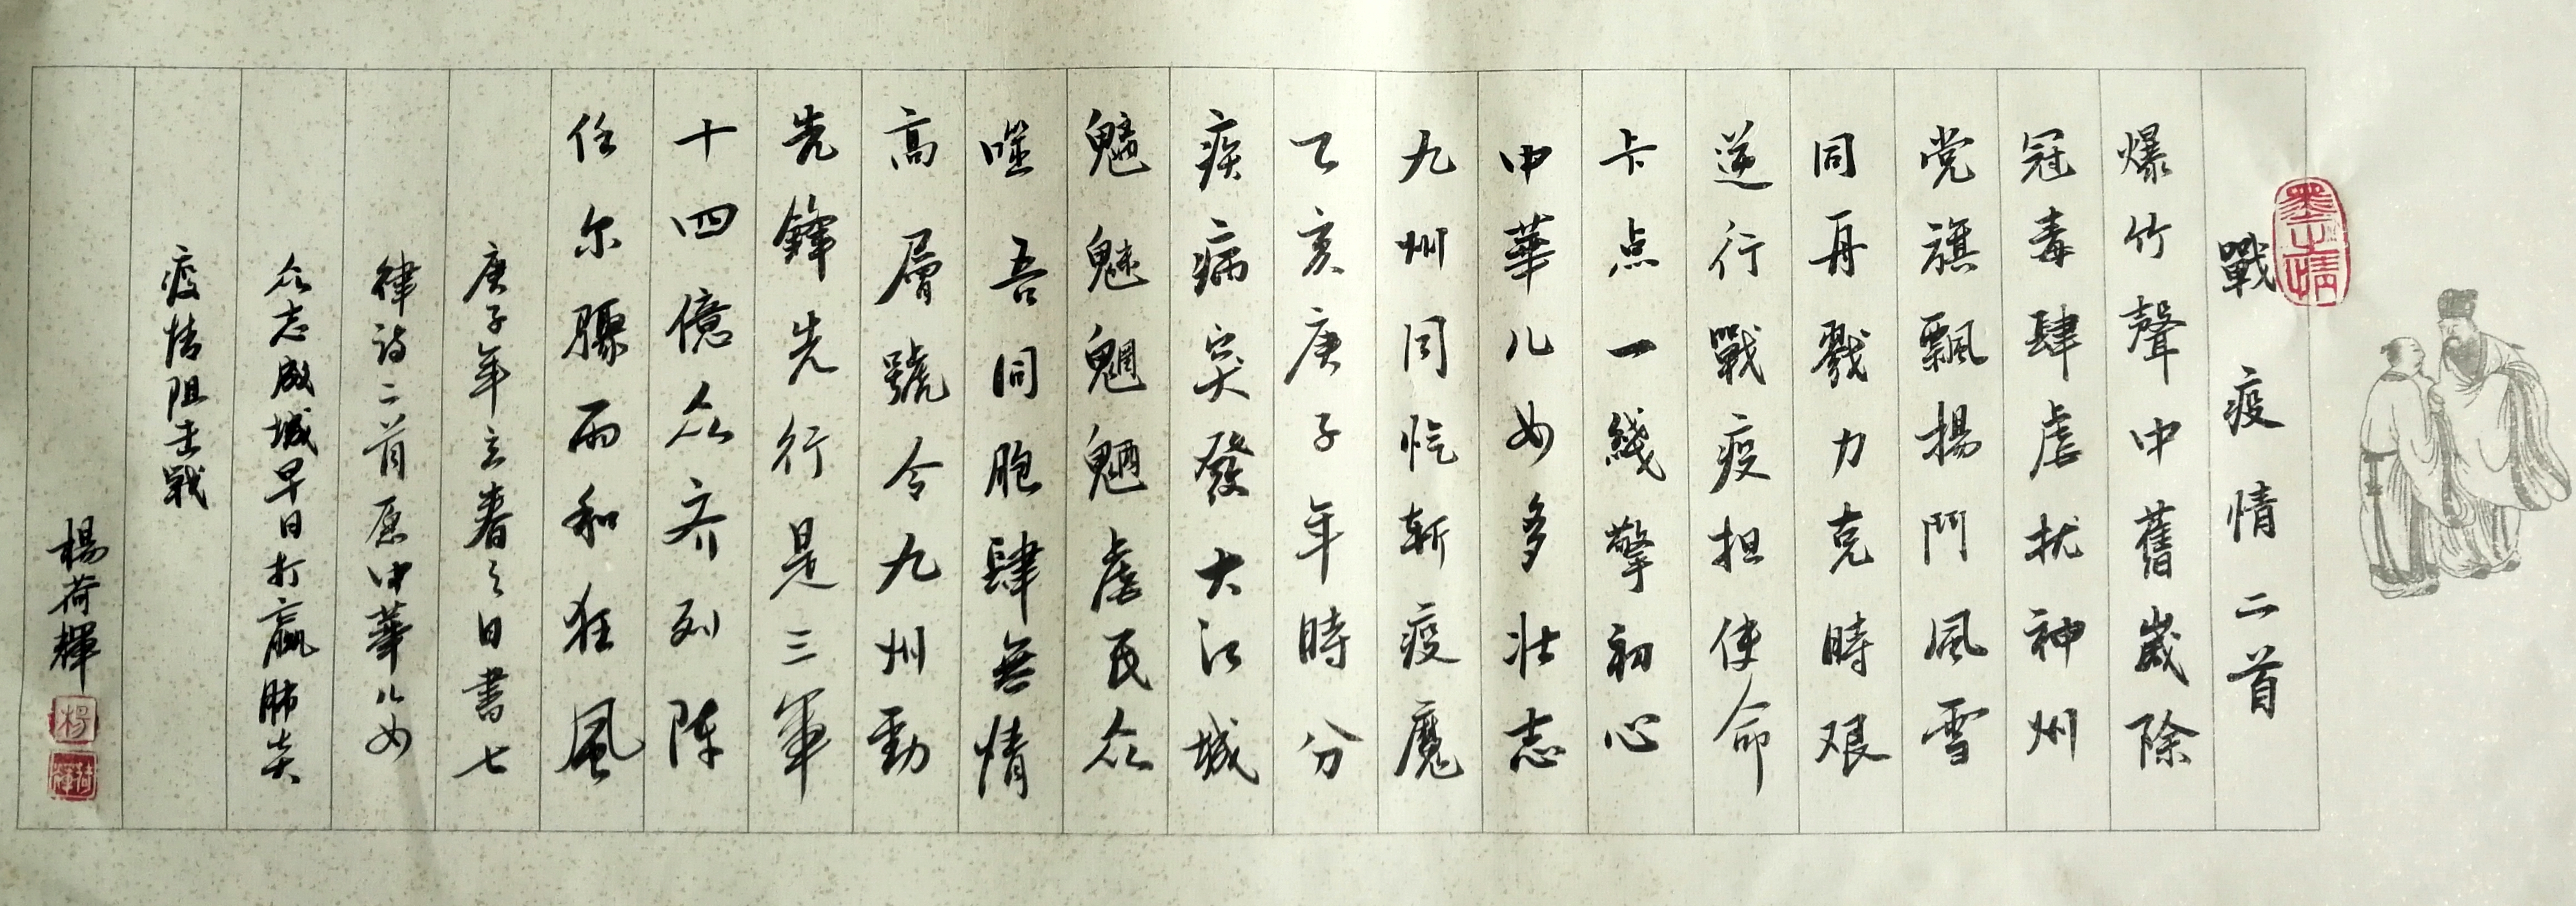 戰疫情二首
爆竹聲中舊歲除
冠毒肆虐扰神州
党旗飄揚鬥風雪
同舟戮力克時艰
逆行戰疫担使命
卡点一綫擎初心
中華儿女多壮志
九州同忾斬疫魔
乙亥庚子年時分
疾病突發大江城
魑魅魍魉虐民众
噬吾同胞肆無情
高層號令九州動
先鋒先行是三軍
十四億众齐列陣
任尔驟雨和狂風
庚子年立春之日書七
律诗二首愿中華儿女
众志成城早日打赢肺炎
疫情阻击戰
楊荷輝
墨情
楊
荷輝